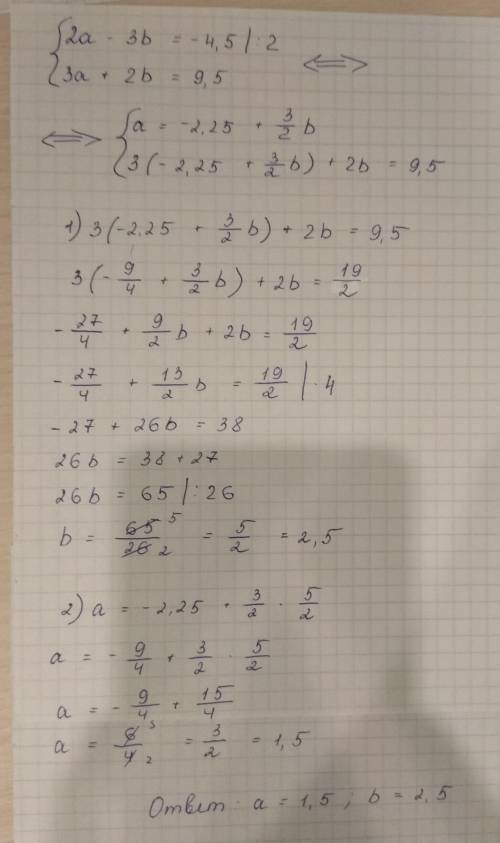 {2a - 3b = -4,5 |:2
{3a + 2b = 9,5 <=>
<=> {a = -2,25 + 3/2 b
{3(-2,25 + 3/2 b) + 2b = 9,5
1) 3(-2,25 + 3/2 b) + 2b = 9,5
3(-9/4 + 3/2 b) + 2b = 19/2
-27/4 + 9/2 b + 2b = 19/2
-27/4 + 13/2 b = 19/2 |·4
-27 + 26b = 38
26b = 38 + 27
26b = 65 |:26
b = 65 5/26 2 = 5/2 = 2,5
2) a = -2,25 + 3/2 · 5/2
a = -9/4 + 3/2 · 5/2
a = -9/4 + 15/4
a = 6 3/4 2 = 3/2 = 1,5
Ответ: a = 1,5 ; b = 2,5